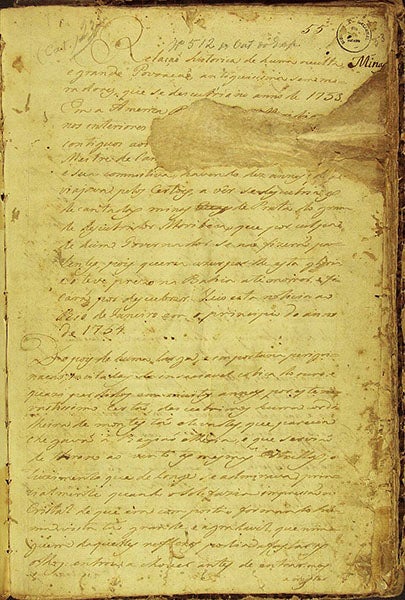 55
Nº 512 do Cat. do Exp.
Minas
Relação historica de huma occulta,
e grande Povoação, antiquissima sem mo-
radores, que se descubrio no anno de 1753
Em a America
nos interiores
contiguos aos
Mestre de Can
e sua comitiva, havendo dez annos, q̃
viajava pelos Certões, a ver se descubria as
decantadas minas de Prata do gran-
de descubridor Moribeca, que por culpa
de hum Governador se não fizerão pa-
tentes, pois queria usurparlhe esta gloria
e o teve prezo na Bahia até morrer, e fi-
carão por descubrir. Veio esta noticia ao
Rio de Janeiro em o principio do anno
de 1754.
Depois de huma larga, e importuna peregri-
nação, incitados da insaciavel cobiça do ouro, e
quazi perdidos em muitos annos por este vas-
tissimo Certão, descubrimos huma cordi-
lheira de montes tão elevados, que parecia
chegavão a Região Etherea, e que servião
de throno ao vento, as mesmas Estrellas; o
luzimento que de longe se admirava, prin-
cipalmente quando o Sol fazia impressão ao
Cristal de que era composta formando hu-
ma vista tão grande, e agradavel, que nin-
guem daquelles reflexos podia afastar os
olhos: entrou a chover antes de entrarmos
a regis